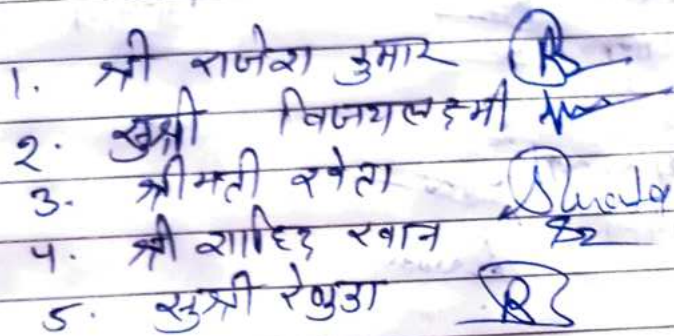 1. श्री राजेश कुमार
2. सुश्री विजयलक्ष्मी
3. श्रीमती श्वेता Shweta
4. श्री शाहिद खान
5. सुश्री रेणुका